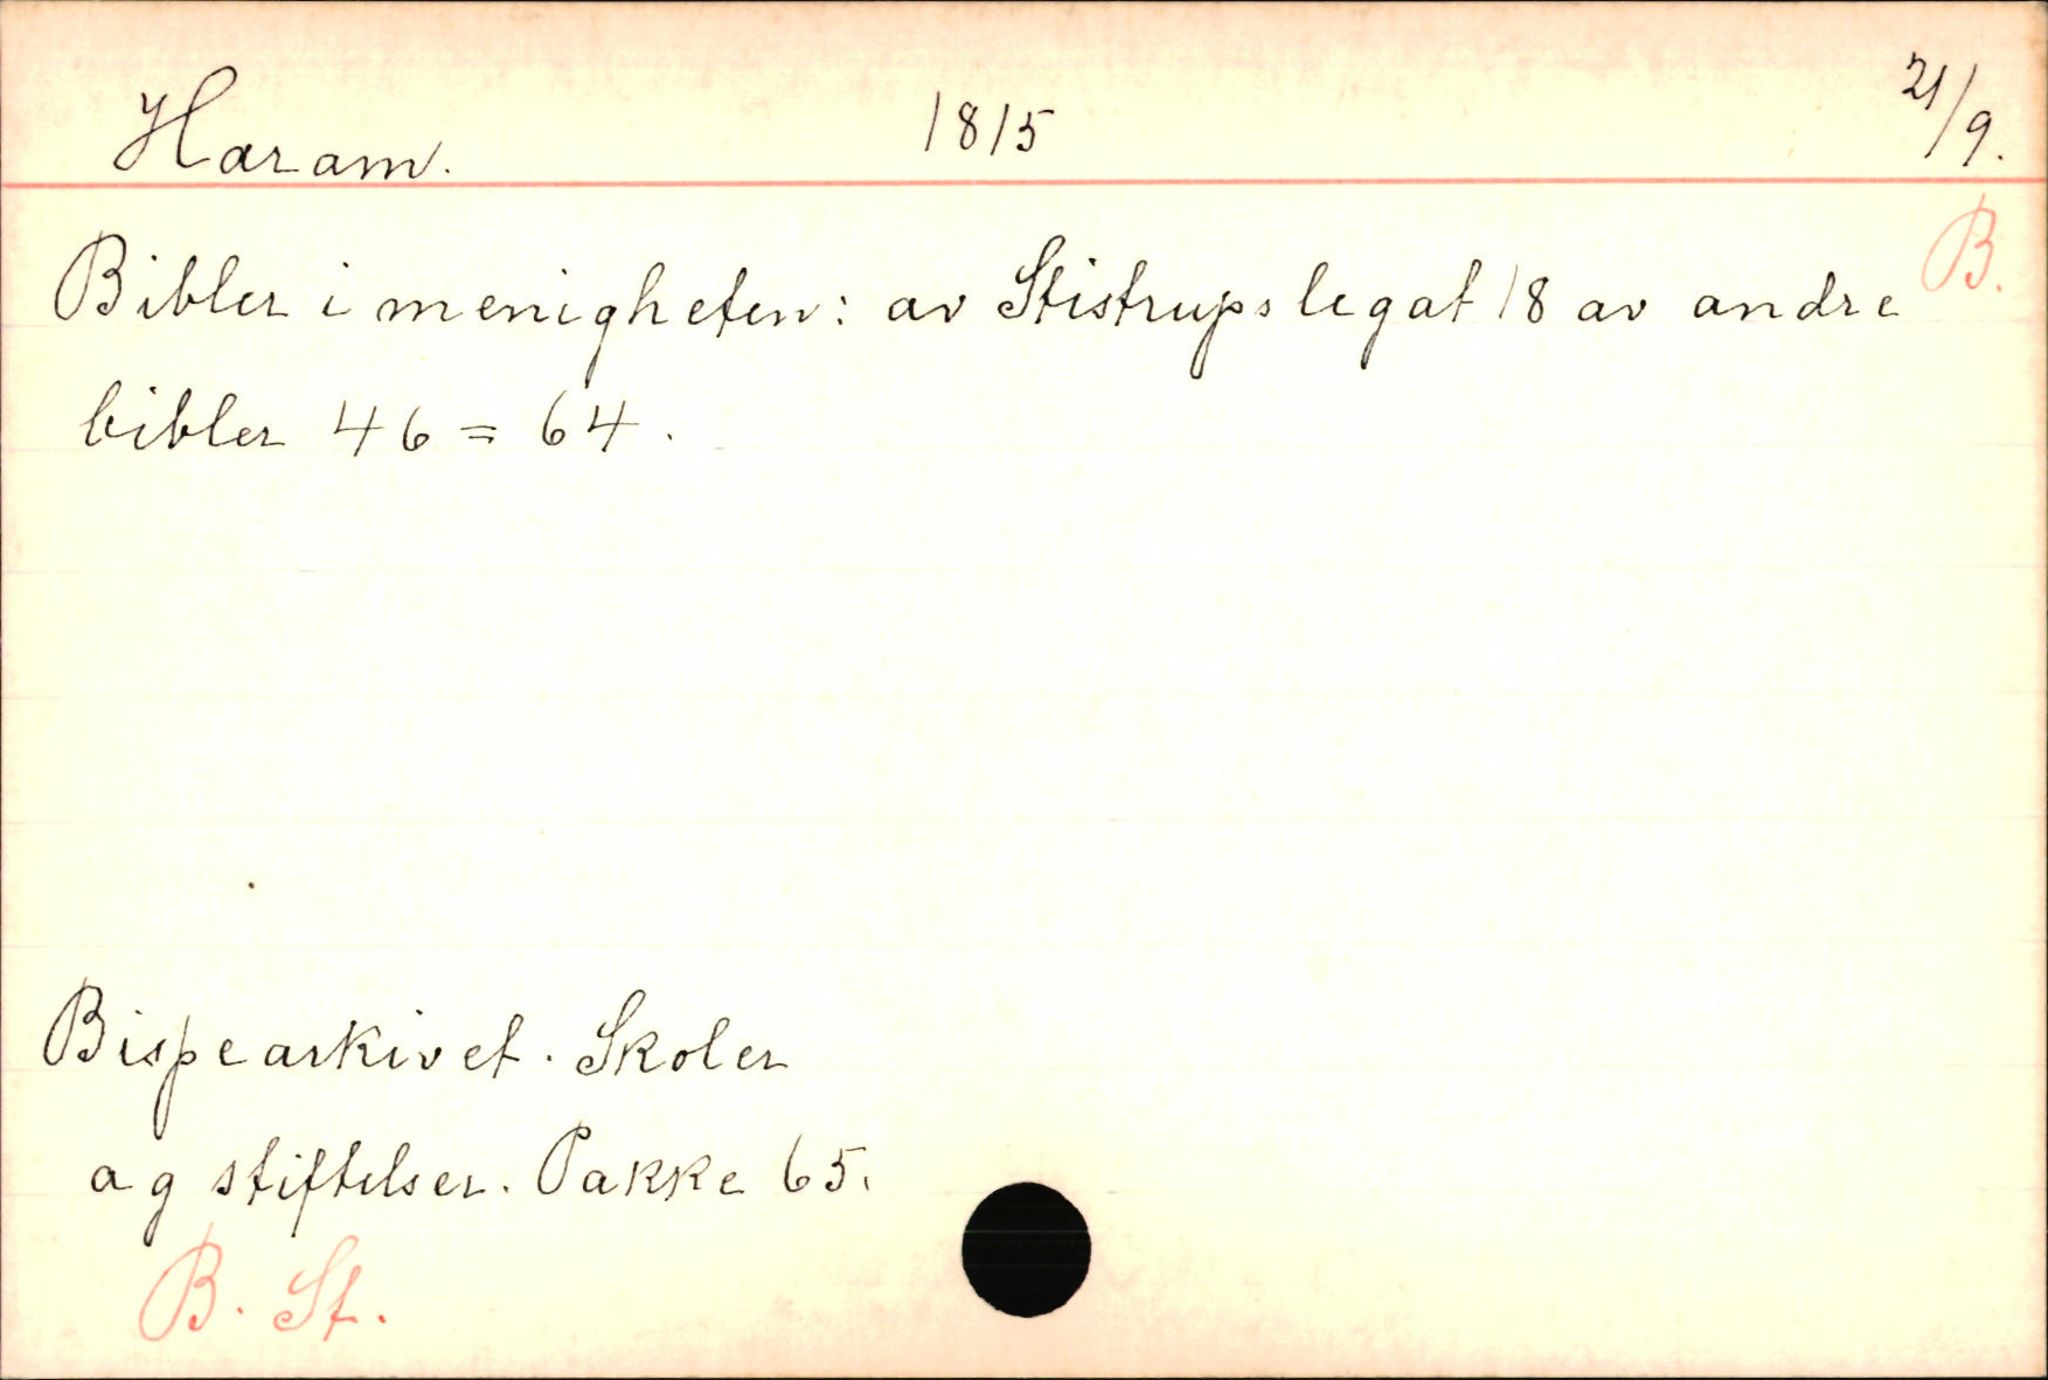 Haram. 1815 21/9.
B.
Bibler i menigheten: av Stistrups legat 18 av andre
bibler 46 = 64.
Bispearkivet. Skoler
og stiftelser. Pakke 65.
B. St.